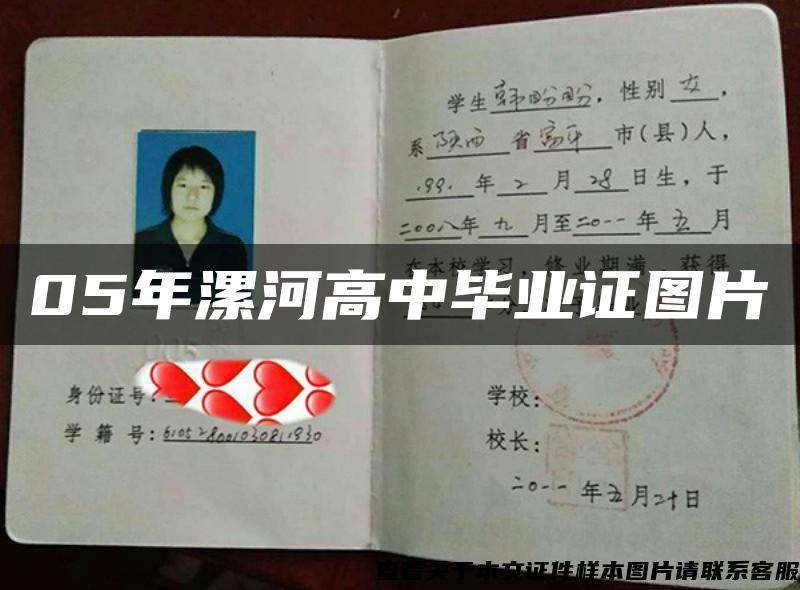 学生韩盼盼，性别女，
系陕西省富平市(县)人，
1991年2月28日生，于
二00八年九月至二0一一年五月
在本校学习，修业期满，获得
05年漯河高中毕业证图片
身份证号：
学籍号：610528001030811930
学校：
校长：
二0一一年五月二十日
查看关于本文证件样本图片请联系客服